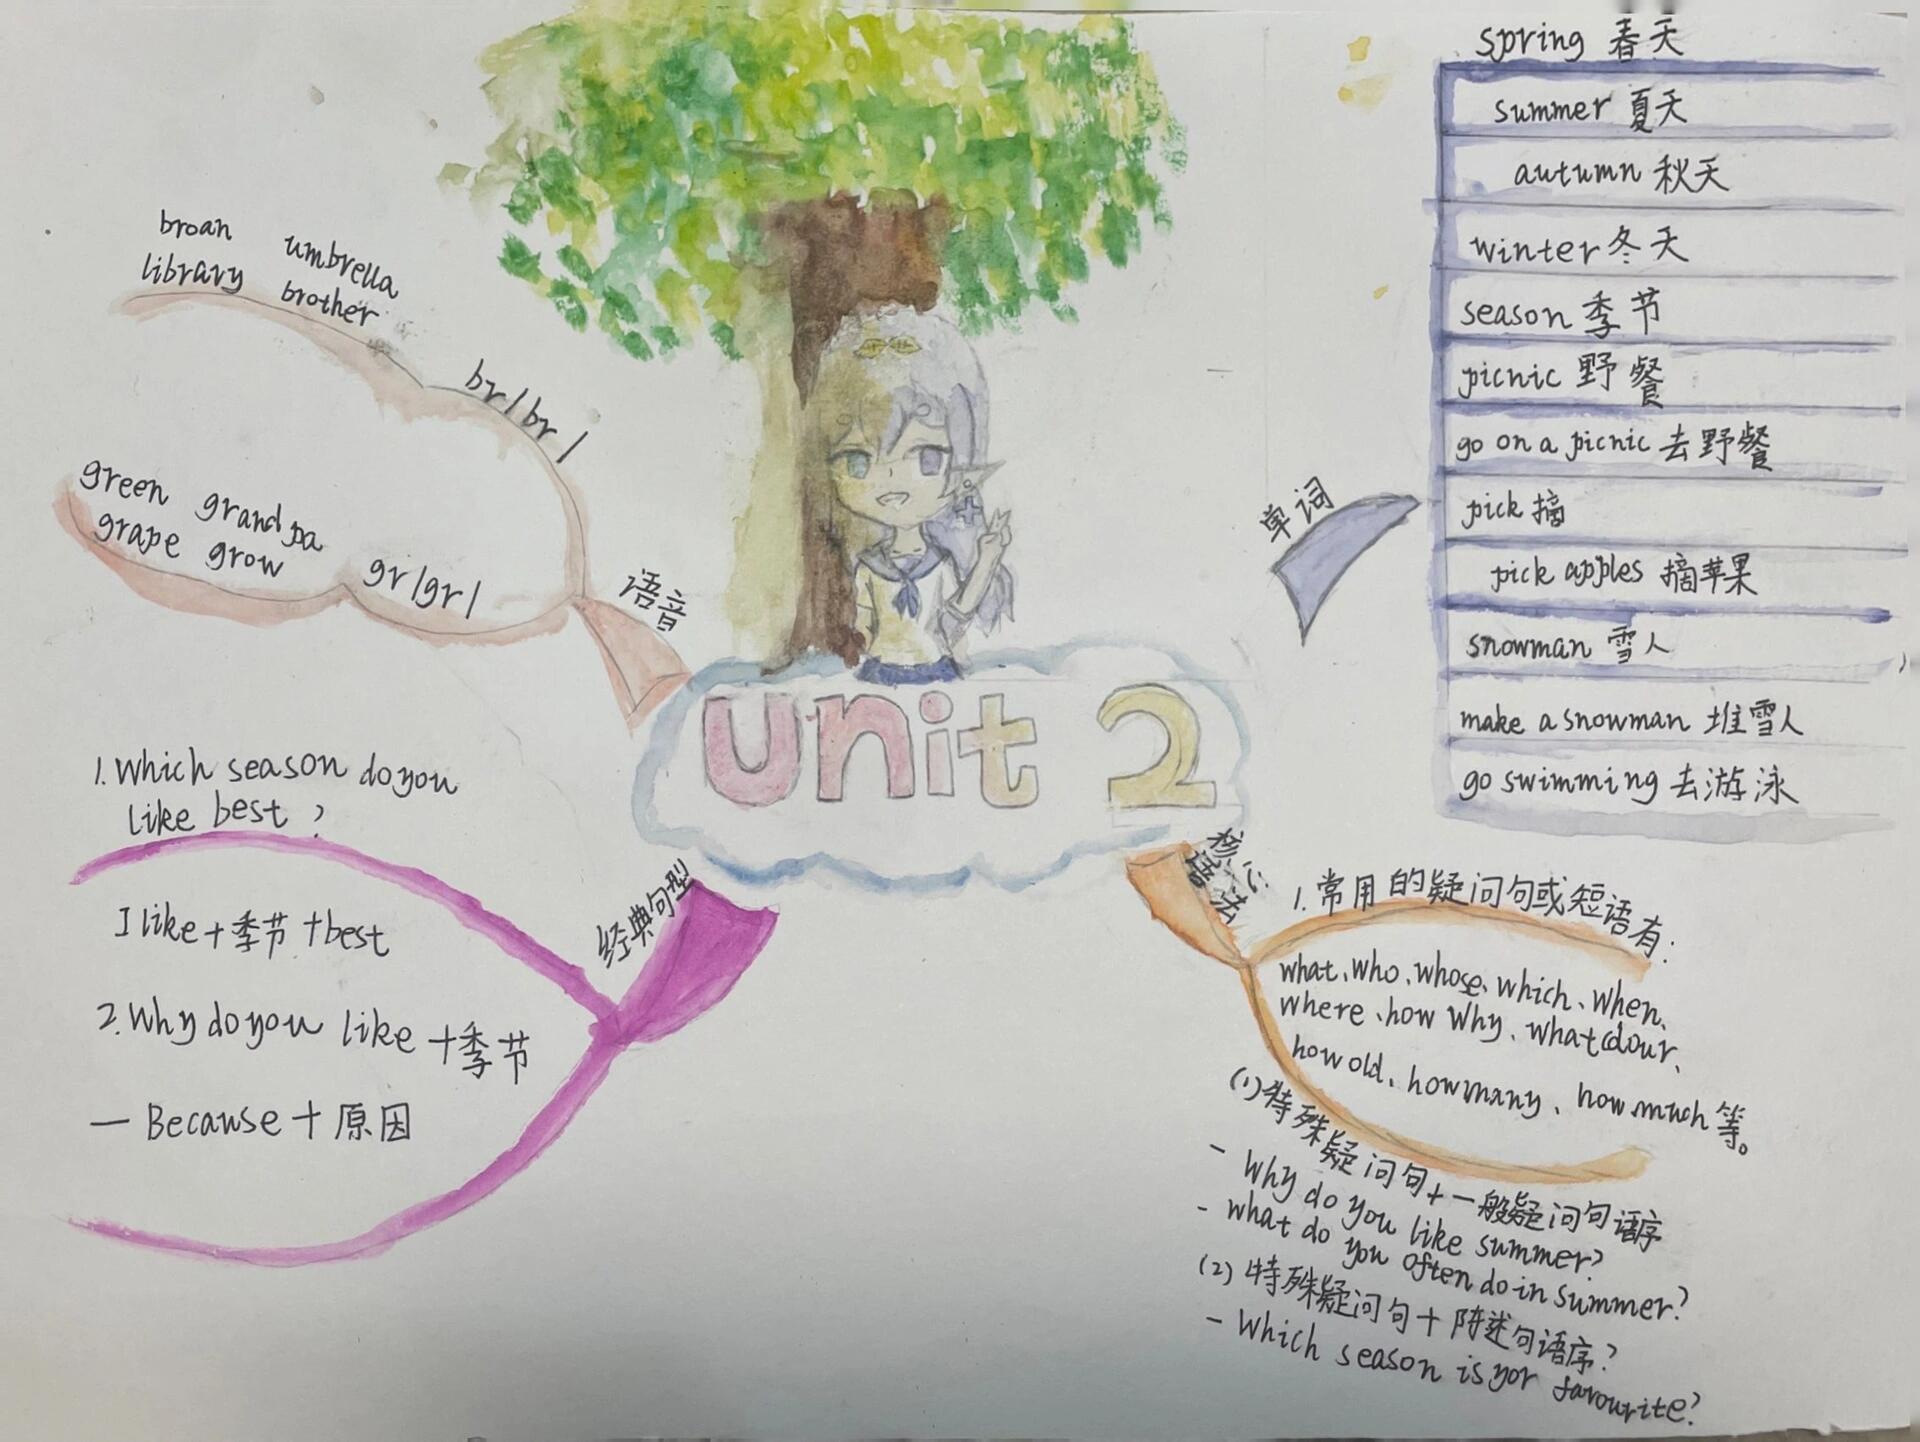 unit 2
语音
br/br/
broan umbrella
library brother
gr/gr/
green grandpa
grape grow
单词
spring 春天
summer 夏天
autumn 秋天
winter 冬天
season 季节
picnic 野餐
go on a picnic 去野餐
pick 摘
pick apples 摘苹果
snowman 雪人
make a snowman 堆雪人
go swimming 去游泳
经典句型
1. Which season do you
like best ?
I like + 季节 + best
2. Why do you like + 季节
— Because + 原因
核心
语法
1. 常用的疑问句或短语有:
what、who、whose、which、when、
where、how why、what colour、
how old、how many、how much 等。
(1) 特殊疑问句+一般疑问句语序
- Why do you like summer?
- what do you often do in summer?
(2) 特殊疑问句+阵述句语序?
- Which season is yor favourite?